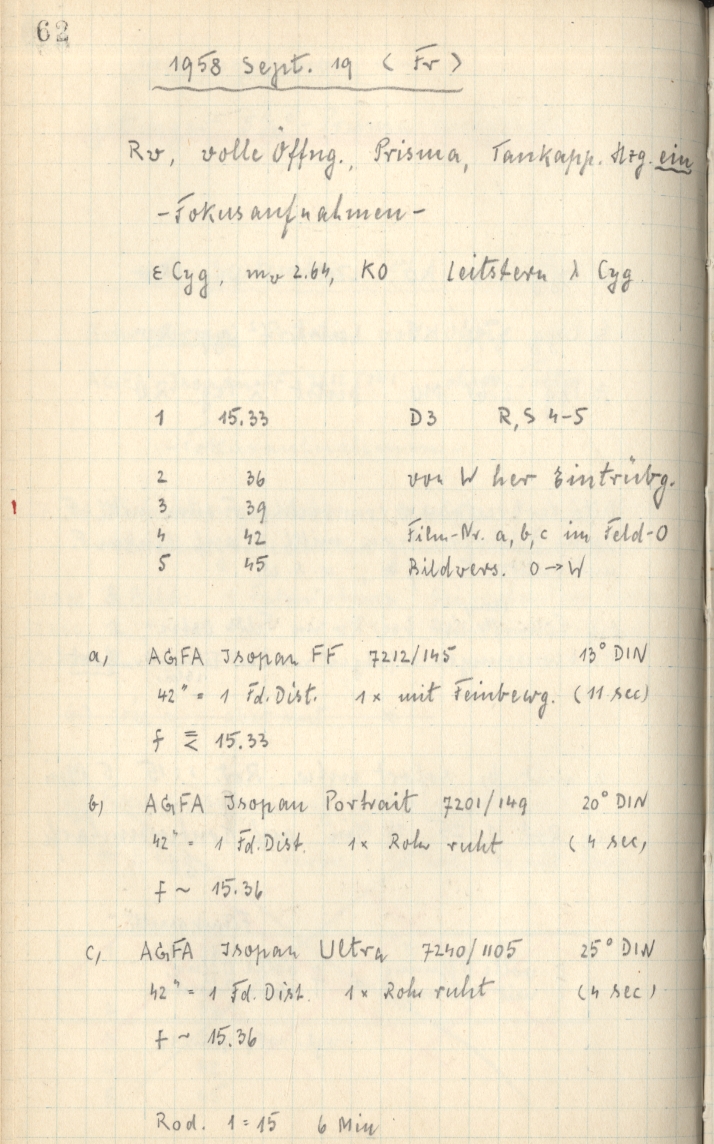 62
1958 Sept. 19 (Fr)
Rv, volle Öffng., Prisma, Tankapp. Hzg. ein
-Fokusaufnahmen-
ε Cyg, mv 2.64, K0 Leitstern λ Cyg
1 15.33 D3 R, S 4-5
2 36 von W her Eintrübg.
3 39
4 42 Film-Nr. a, b, c im Feld-O
5 45 Bildvers. O→W
a, AGFA Isopan FF 7212/145 13° DIN
42" = 1 Fd. Dist. 1x mit Feinbewg. (11 sec)
f ≦ 15.33
b, AGFA Isopan Portrait 7201/149 20° DIN
42" = 1 Fd. Dist. 1x Rohr ruht (4 sec)
f ~ 15.36
c, AGFA Isopan Ultra 7240/1105 25° DIN
42" = 1 Fd. Dist. 1x Rohr ruht (4 sec)
f ~ 15.36
Rod. 1=15 6 Min